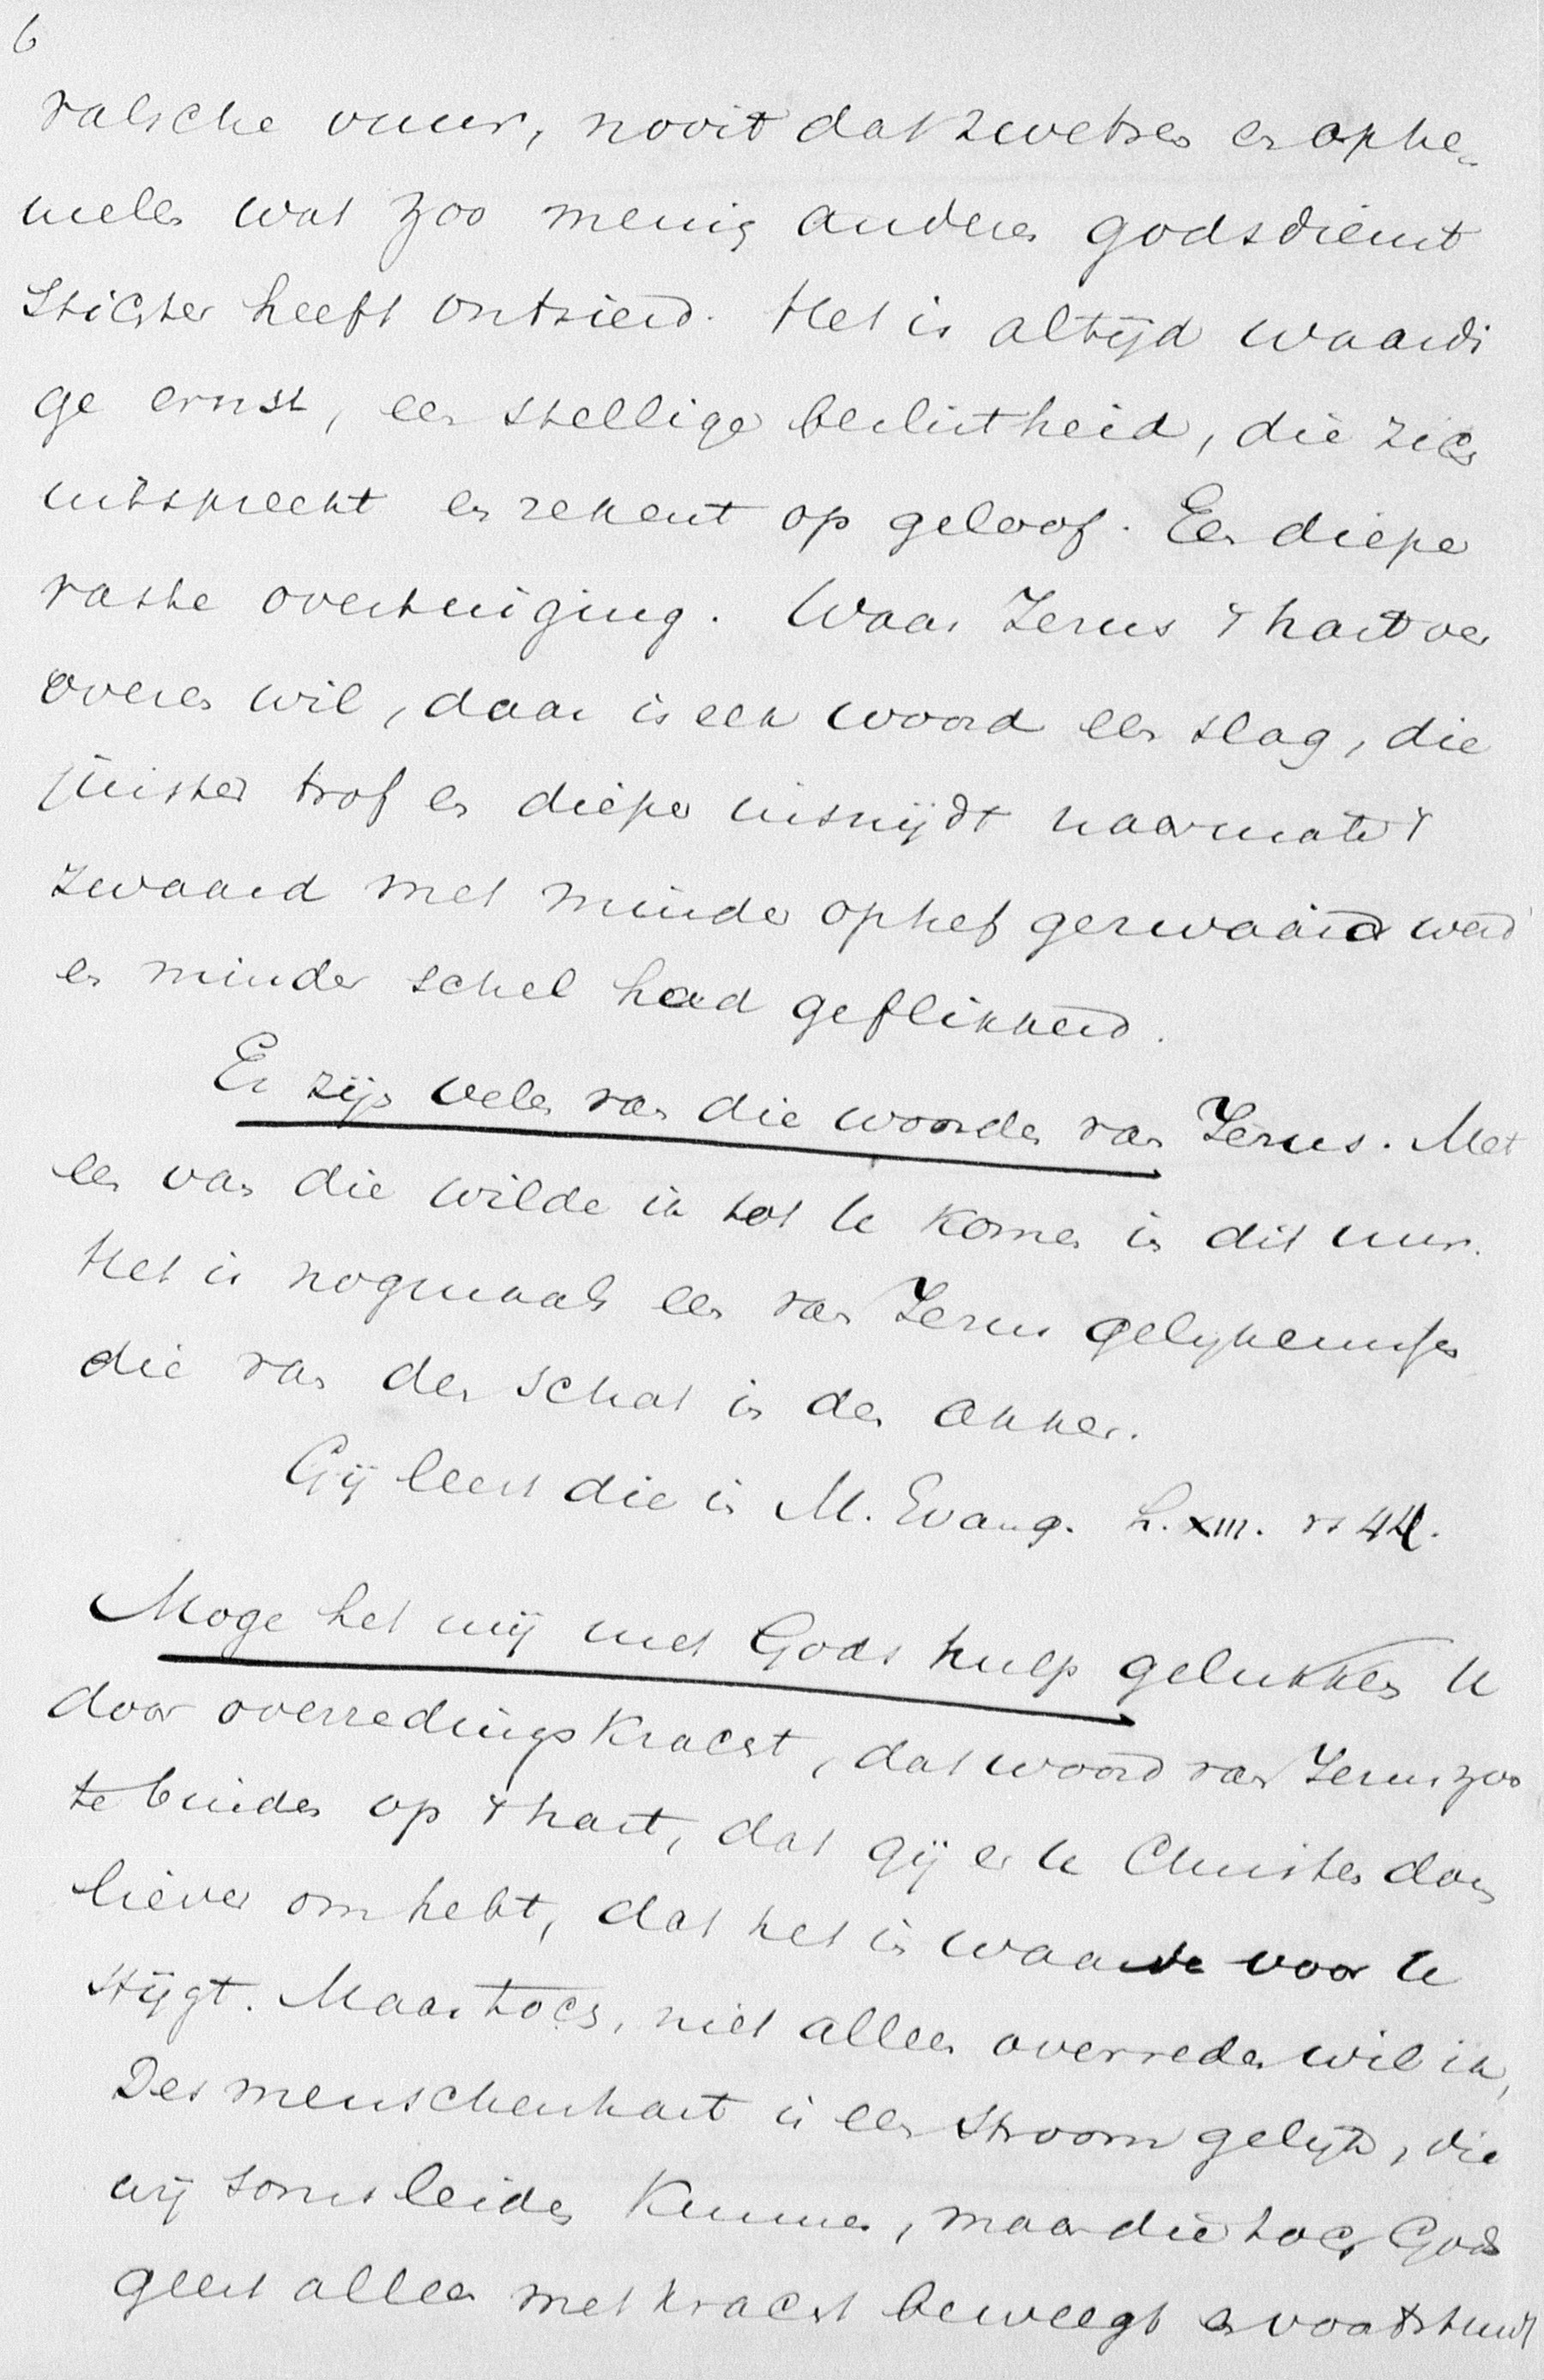 6
valsche vuur, nooit dat zwetsen en ophe-
melen wat zoo menig anderen godsdienst
stichter heeft ontsierd. Het is altijd waardi
ge ernst, een stellige beslistheid, die zich
uitspreekt en rekent op geloof. Een diepe
vaste overtuiging. Waar Jezus 't hart ver
overen wil, daar is elk woord een slag, die
juister trof en dieper insnijdt naarmate 't
zwaard met minder ophef gezwaaid werd
en minder schel had geflikkerd.
Er zijn velen van die woorden van Jezus. Met
een van die wilde ik tot U komen in dit uur.
Het is nogmaals een van Jezus gelykenissen
die van den schat in den akker.
Gij leest die in M. Evang. H. XIII. vs 44.
Moge het mij met Gods hulp gelukken U
door overredingskracht, dat woord van Jezus zoo
te binden op 't hart, dat gij er U Christendom
liever om hebt, dat het in waarde voor U
stijgt. Maar toch, niet alleen overreden wil ik,
Des menschenhart is een stroom gelijk, die
wij soms leiden kunnen, maar die toch Gods
geest alleen met kracht beweegt en voortstuwt